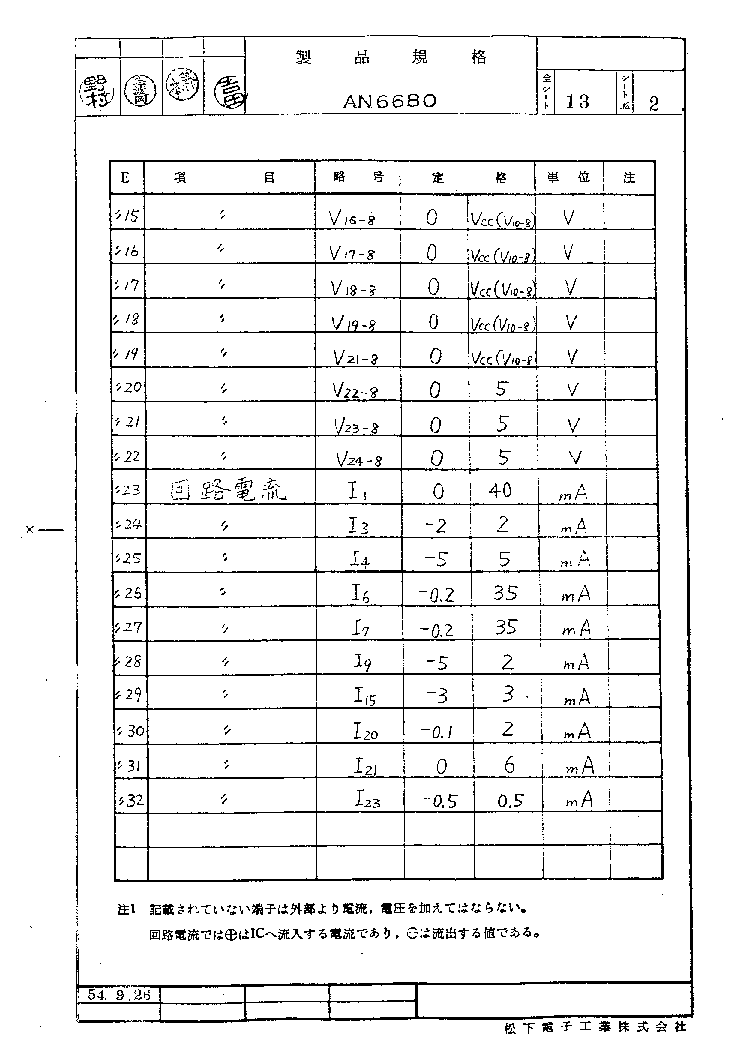 製品規格
AN6680
全シート 13
シート№ 2
野村
吉田
E 項目 略号 定格 単位 注
〃15 〃 V16-8 0 Vcc(V10-8) V
〃16 〃 V17-8 0 Vcc(V10-8) V
〃17 〃 V18-8 0 Vcc(V10-8) V
〃18 〃 V19-8 0 Vcc(V10-8) V
〃19 〃 V21-8 0 Vcc(V10-8) V
〃20 〃 V22-8 0 5 V
〃21 〃 V23-8 0 5 V
〃22 〃 V24-8 0 5 V
〃23 回路電流 I1 0 40 mA
〃24 〃 I3 -2 2 mA
〃25 〃 I4 -5 5 mA
〃26 〃 I6 -0.2 35 mA
〃27 〃 I7 -0.2 35 mA
〃28 〃 I9 -5 2 mA
〃29 〃 I15 -3 3 mA
〃30 〃 I20 -0.1 2 mA
〃31 〃 I21 0 6 mA
〃32 〃 I23 -0.5 0.5 mA
注1 記載されていない端子は外部より電流,電圧を加えてはならない。
回路電流では⊕はICへ流入する電流であり,⊖は流出する値である。
54.9.26
松下電子工業株式会社